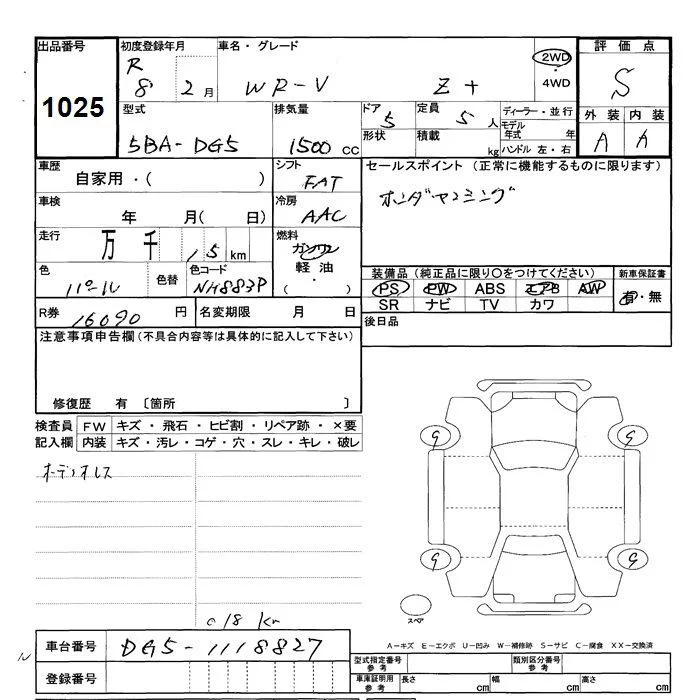 出品番号 初度登録年月 車名・グレード 評価点
1025 R 8 2月 WR-V Z+ 2WD・4WD S
型式 排気量 ドア 定員 ディーラー・並行 外装 内装
5BA-DG5 1500cc 5 5人 モデル年式 年 A A
形状 積載 kg ハンドル 左・右
車歴 シフト セールスポイント(正常に機能するものに限ります)
自家用・( ) FAT ホンダセンシング
車検 冷房
年 月( 日) AAC
走行 燃料
万 千 15km ガソリン
軽油
( ・ )
色 色替 色コード 装備品(純正品に限り〇をつけてください) 新車保証書
パール NH883P PS PW ABS エアB AW 有・無
SR ナビ TV カワ
R券 16090円 名変期限 月 日 後日品
注意事項申告欄(不具合内容等は具体的に記入して下さい)
修復歴 有〔箇所 〕
検査員 FW キズ・飛石・ヒビ割・リペア跡・×要
記入欄 内装 キズ・汚レ・コゲ・穴・スレ・キレ・破レ
オーディオレス
9 9
9 9
スペア
018km
A-キズ E-エクボ U-凹み W-補修跡 S-サビ C-腐食 XX-交換済
車台番号 DG5-1118827
登録番号
型式指定番号参考 類別区分番号参考
車庫証明用参考 長さ cm 幅 cm 高さ cm